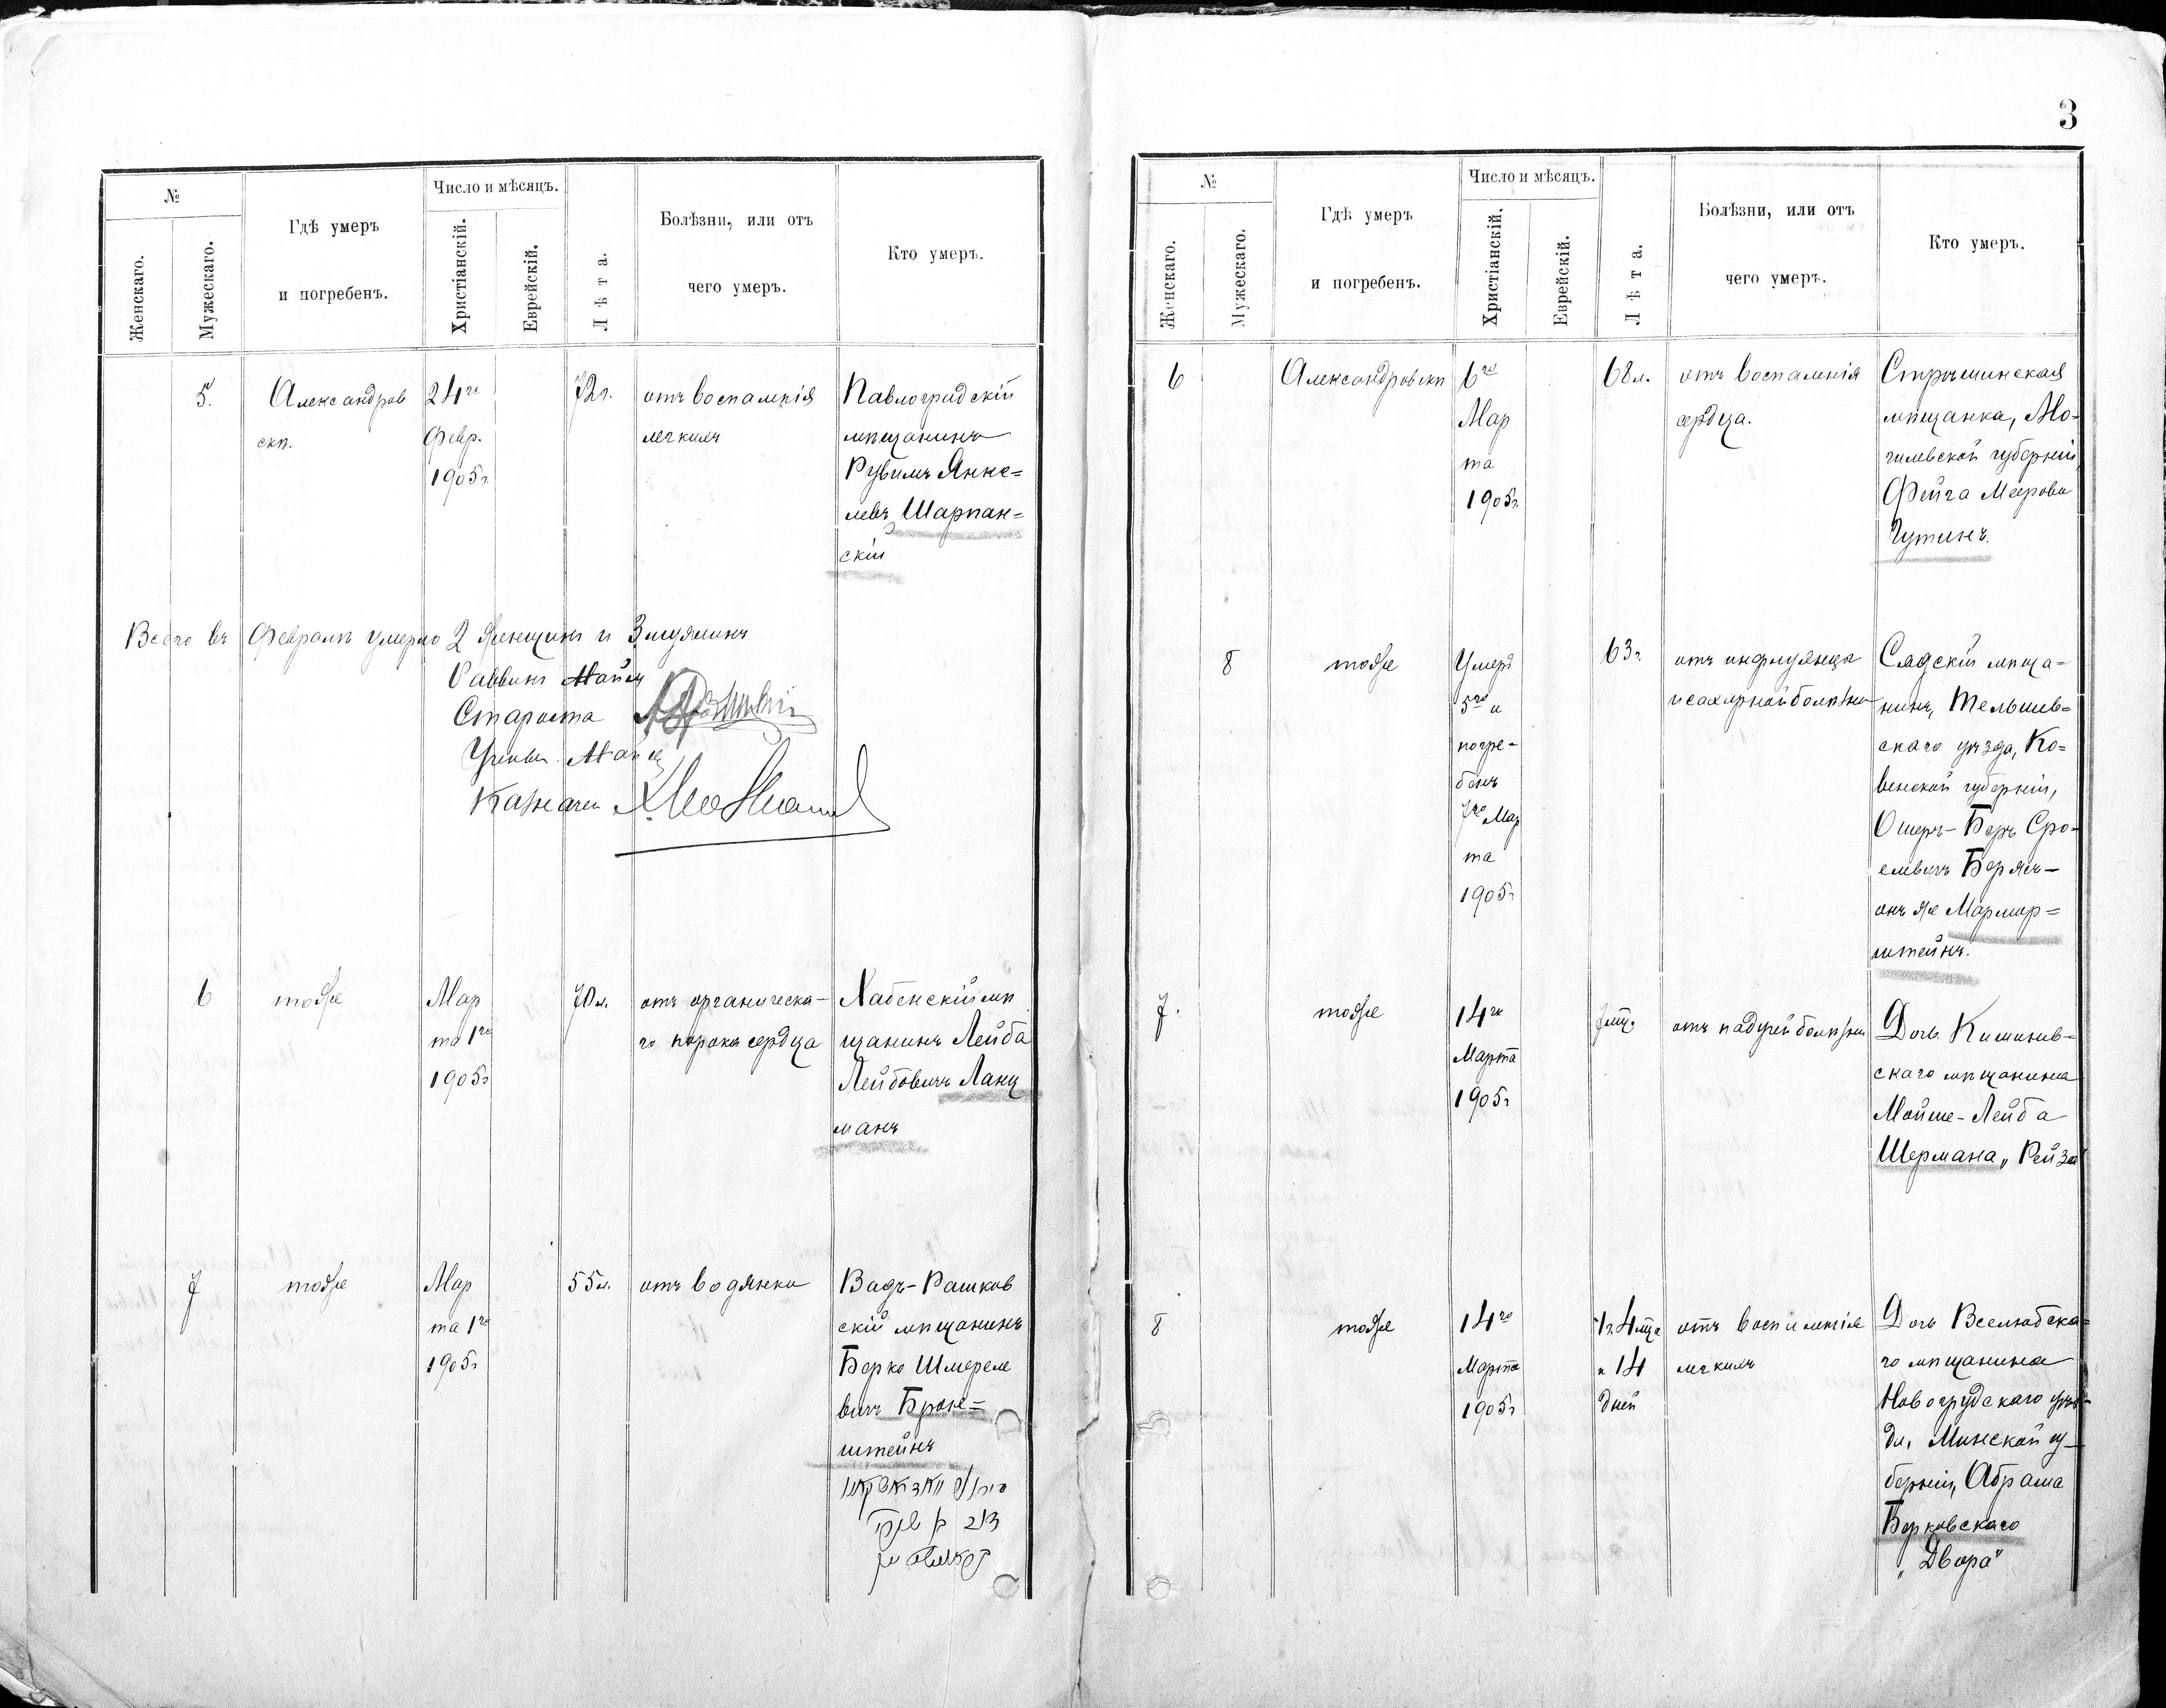 №
Женскаго.
Мужескаго.
Гдѣ умеръ
и погребенъ.
Число и мѣсяцъ.
Христіанскій.
Еврейскій.
Лѣта.
Болѣзни, или отъ
чего умеръ.
Кто умеръ.
5.
Александров
скѣ.
24го
Февр.
1905г.
72г.
отъ воспаленія
легкихъ
Павлоградскій
мѣщанинъ
Рувимъ Янке=
левъ Шарпан=
скій
Всего въ Февралѣ умерло 2 женщины и 3 мужчинъ
Раввинъ
Староста
Учен.
Казначей
6
тоже
Мар
та 1го
1905г
70л.
отъ органическа-
го порока сердца
Хабенскій мѣ
щанинъ Лейба
Лейбовичъ Ланц
манъ
7
тоже
Мар
та 1го
1905г
55л.
отъ водянки
Вадъ-Рашков
скій мѣщанинъ
Берко Шмереле
вичъ Брон=
штейнъ
3
№
Женскаго.
Мужескаго.
Гдѣ умеръ
и погребенъ.
Число и мѣсяцъ.
Христіанскій.
Еврейскій.
Лѣта.
Болѣзни, или отъ
чего умеръ.
Кто умеръ.
6
Александровскѣ
6го
Мар
та
1905г.
68л.
отъ воспаленія
сердца.
Стрѣшинская
мѣщанка, Мо-
гилевской губерніи,
Фейга Меерова
Гутинъ.
8
тоже
Умеръ
5го и
погре-
бенъ
7го Мар
та
1905г
63г.
отъ инфлуэнцы
и сахарной болѣзни
Сядскій мѣща=
нинъ, Тельшев=
скаго уѣзда, Ко=
венской губерніи,
Ошеръ-Беръ Сро-
елевичъ
онъ же Мармор=
штейнъ.
7.
тоже
14го
Марта
1905г
7мѣ.
отъ падучей болѣзни
Дочь Кишинев=
скаго мѣщанина
Мойше-Лейба
Шермана, „Рейза
8
тоже
14го
Марта
1905г
1г. 4мѣсца
и 14
дней
отъ воспаленія
легкихъ
Дочь Вселюбска=
го мѣщанина
Новогрудскаго уѣз-
да, Минской гу-
берніи, Абрама
Берковскаго
„Двора"